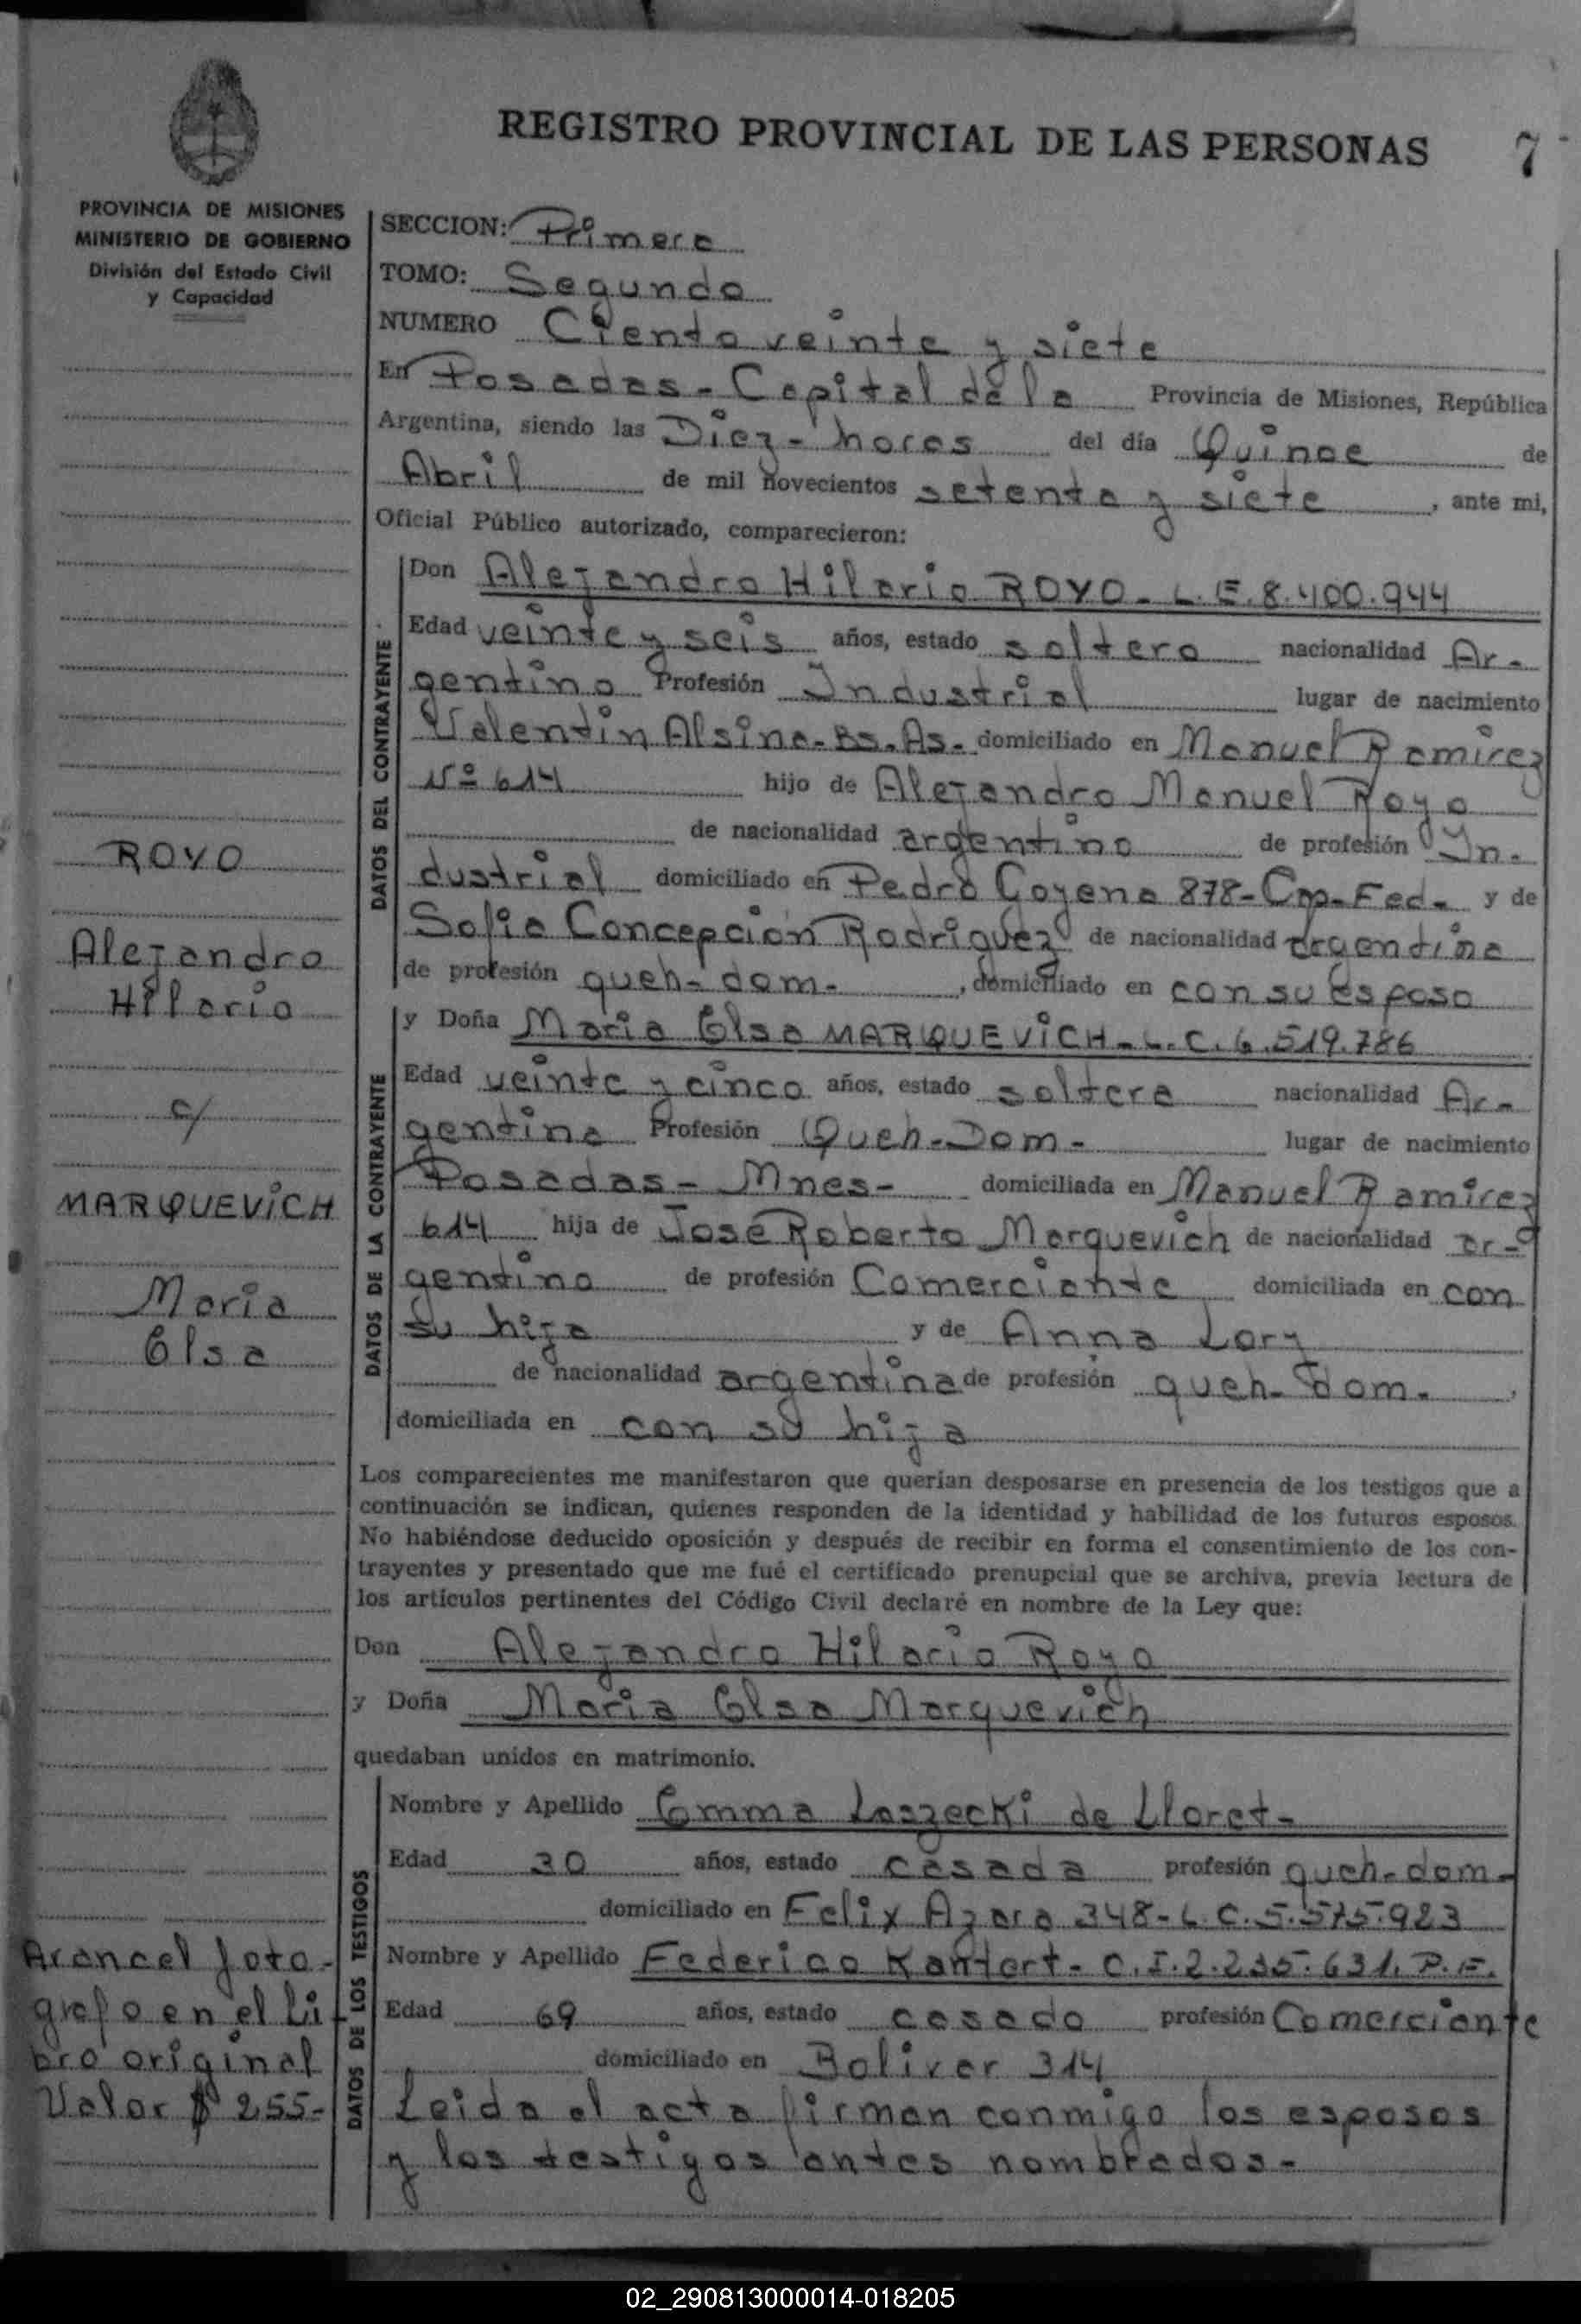 REGISTRO PROVINCIAL DE LAS PERSONAS 7
PROVINCIA DE MISIONES
MINISTERIO DE GOBIERNO
División del Estado Civil
y Capacidad
SECCION: Primera
TOMO: Segundo
NUMERO Ciento veinte y siete
En Posadas - Capital de la Provincia de Misiones, República
Argentina, siendo las Diez - horas del día Quince de
Abril de mil novecientos setenta y siete, ante mi,
Oficial Público autorizado, comparecieron:
DATOS DEL CONTRAYENTE
Don Alejandro Hilario ROYO - L.E. 8.400.944
Edad veinte y seis años, estado soltero nacionalidad Ar-
gentino Profesión Industrial lugar de nacimiento
Valentin Alsina - Bs. As. - domiciliado en Manuel Ramirez
Nº 614 hijo de Alejandro Manuel Royo
de nacionalidad argentino de profesión In-
dustrial domiciliado en Pedro Goyena 878 - Cap. Fed. - y de
Sofia Concepción Rodriguez de nacionalidad argentina
de profesión queh - dom. - , domiciliado en con su esposo
DATOS DE LA CONTRAYENTE
y Doña Maria Elsa MARQUEVICH - L.C. 6.519.786
Edad veinte y cinco años, estado soltera nacionalidad Ar-
gentina Profesión Queh - Dom - lugar de nacimiento
Posadas - Mnes - domiciliada en Manuel Ramirez
614 hija de José Roberto Marquevich de nacionalidad ar-
gentino de profesión Comerciante domiciliada en con
su hija y de Anna Lory
de nacionalidad argentina de profesión queh - dom. ,
domiciliada en con su hija
Los comparecientes me manifestaron que querían desposarse en presencia de los testigos que a
continuación se indican, quienes responden de la identidad y habilidad de los futuros esposos.
No habiéndose deducido oposición y después de recibir en forma el consentimiento de los con-
trayentes y presentado que me fué el certificado prenupcial que se archiva, previa lectura de
los artículos pertinentes del Código Civil declaré en nombre de la Ley que:
Don Alejandro Hilario Royo
y Doña Maria Elsa Marquevich
quedaban unidos en matrimonio.
DATOS DE LOS TESTIGOS
Nombre y Apellido Emma Laszecki de Lloret -
Edad 30 años, estado casada profesión queh - dom -
domiciliado en Felix Azara 348 - L.C. 5.575.923
Nombre y Apellido Federico Kantort - C.I. 2.235.631. P.F.
Edad 69 años, estado casado profesión Comerciante
domiciliado en Bolivar 314
Leida el acta firman conmigo los esposos
y los testigos antes nombrados -
ROYO
Alejandro
Hilario
c/
MARQUEVICH
Maria
Elsa
Arancel foto-
grafo en el Li
bro original
Valor $ 255-
02_290813000014-018205